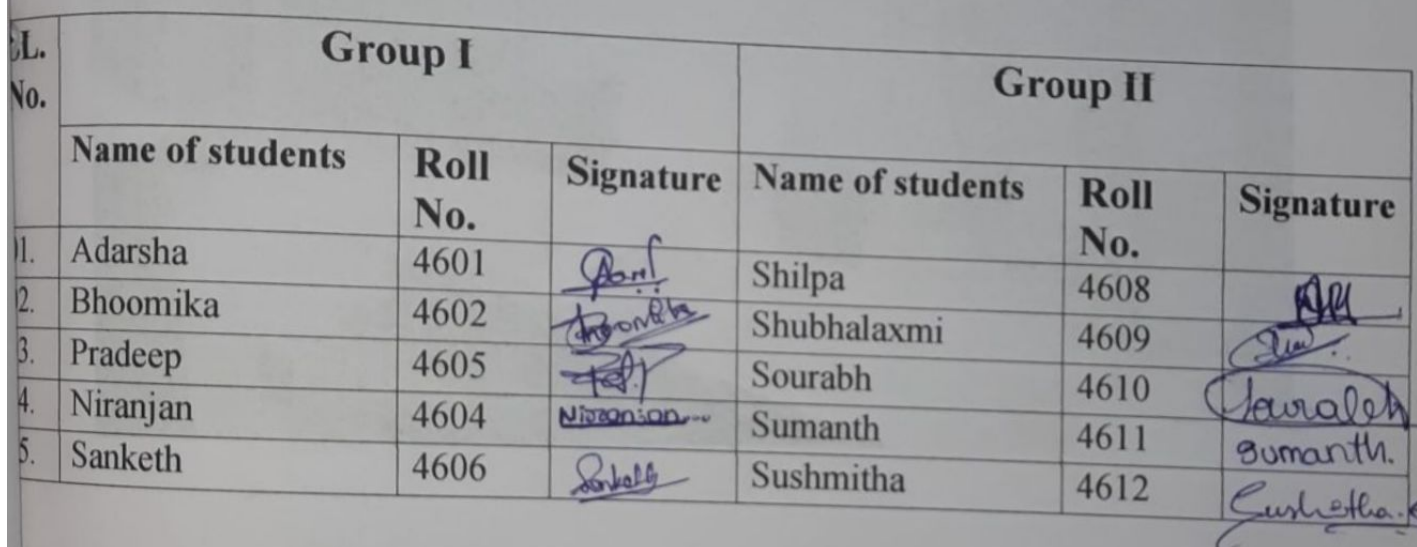 Group I Group II
L.
No.
Name of students Roll No. Signature Name of students Roll No. Signature
1. Adarsha 4601 Shilpa 4608
2. Bhoomika 4602 Shubhalaxmi 4609
3. Pradeep 4605 Sourabh 4610
4. Niranjan 4604 Sumanth 4611 Sumanth.
5. Sanketh 4606 Sushmitha 4612